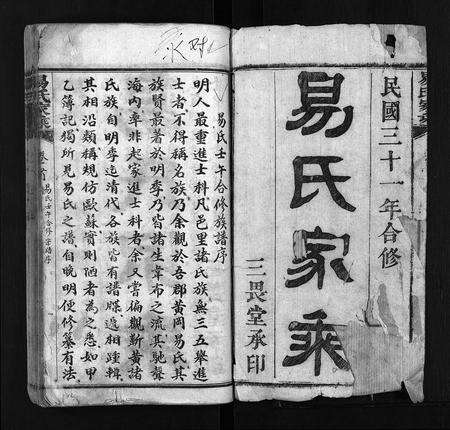 民國三十一年合修
易氏家乘
三畏堂承印
易氏壬午合修族譜序
明人最重進士科凡邑里諸氏族無三五舉進
士者不得稱名族乃余觀於吾郡黃岡易氏其
族賢最著於明季乃皆諸生韋布之流其馳聲
海內率非起家進士科者余又嘗徧觀新黃諸
氏族自明季迄清代各族皆有譜牒遞相踵輯
其相沿類稱規仿歐蘇實則陋者為之悉如甲
乙簿記獨所見易氏之譜自晄明便修纂有法
易氏家乘
卷首
易氏壬午合修宗譜序